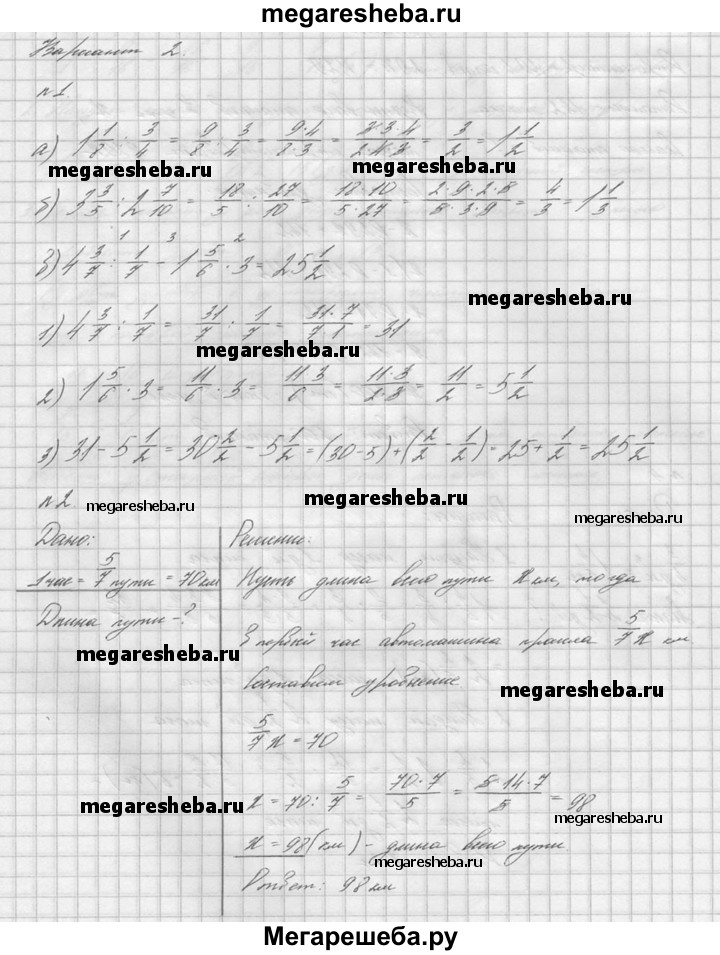 megaresheba.ru
Вариант 2.
n1.
а) 1 1/8 : 3/4 = 9/8 : 3/4 = 9·4/8·3 = 3·3·4/2·4·3 = 3/2 = 1 1/2
megaresheba.ru megaresheba.ru
б) 3 3/5 : 2 7/10 = 18/5 : 27/10 = 18·10/5·27 = 2·9·2·5/5·3·9 = 4/3 = 1 1/3
1 3 2
в) 4 3/7 : 1/7 - 1 5/6 · 3 = 25 1/2
megaresheba.ru
1) 4 3/7 : 1/7 = 31/7 : 1/7 = 31·7/7·1 = 31
megaresheba.ru
2) 1 5/6 · 3 = 11/6 · 3 = 11·3/6 = 11·3/2·3 = 11/2 = 5 1/2
3) 31 - 5 1/2 = 30 2/2 - 5 1/2 = (30-5)+(2/2 - 1/2) = 25 + 1/2 = 25 1/2
n2. megaresheba.ru megaresheba.ru megaresheba.ru
Дано:
1 час = 5/7 пути = 70 км
Длина пути - ?
megaresheba.ru
megaresheba.ru
Решение:
megaresheba.ru
Пусть длина всего пути x км, тогда
В первый час автомашина прошла 5/7 x км.
Составим уравнение
megaresheba.ru
5/7 x = 70
x = 70 : 5/7 = 70·7/5 = 5·14·7/5 = 98
megaresheba.ru
x = 98 (км) - длина всего пути
megaresheba.ru
Ответ: 98 км
Мегарешеба.ру